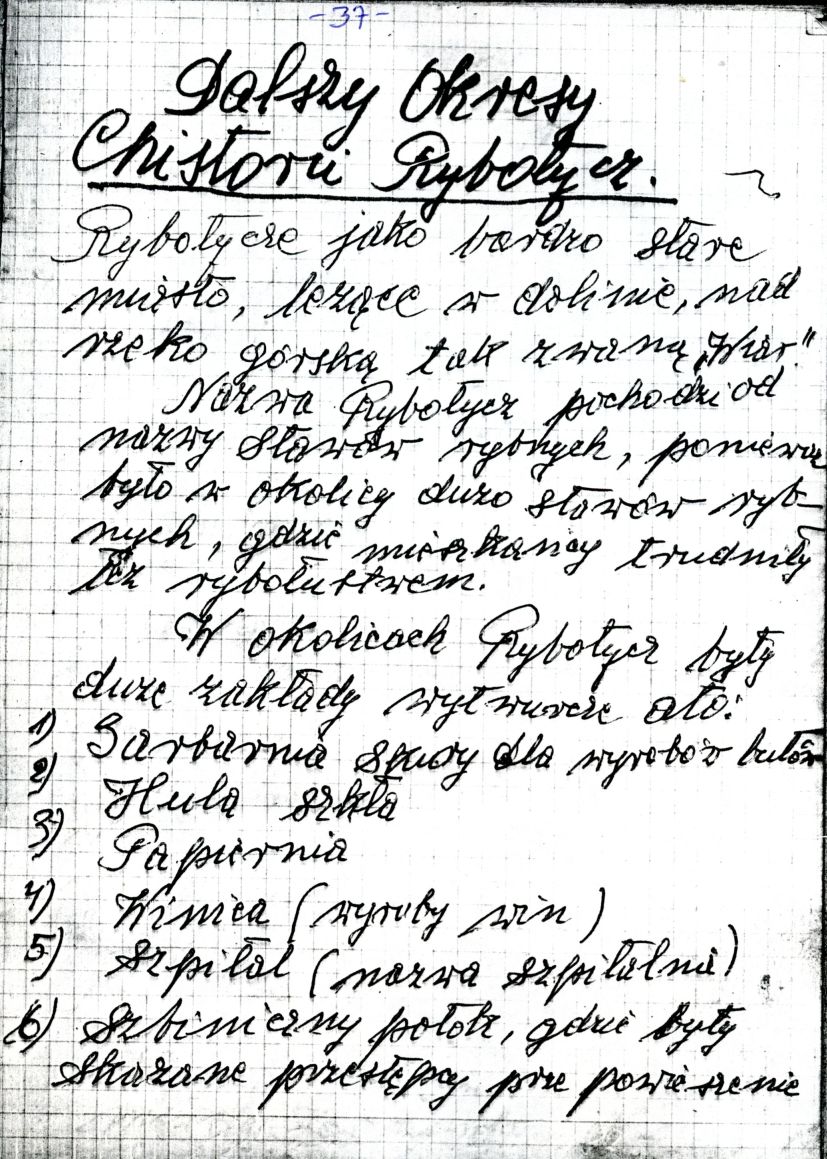 -37-
Dalszy Okresy
Chistorii Rybotycz.
Rybotycze jako bardzo stare
miasto, leżące w dolinie, nad
rzeko górską tak zwaną „Wiar."
Nazwa Rybotycz pochodzi od
nazwy stawów rybnych, ponieważ
było w okolicy dużo stawów ryb-
nych, gdzie mieszkańcy trudniły
się rybołustwem.
W okolicach Rybotycz były
duże zakłady wytwurcze ato:
1) Garbarnia skury dla wyrobów butów
2) Huta szkła
3) Papiernia
4) Winica (wyroby win)
5) Szpital (nazwa szpitalnia)
6) Szbiniczny potok, gdzie były
skazane przestępcy prze powieszenie